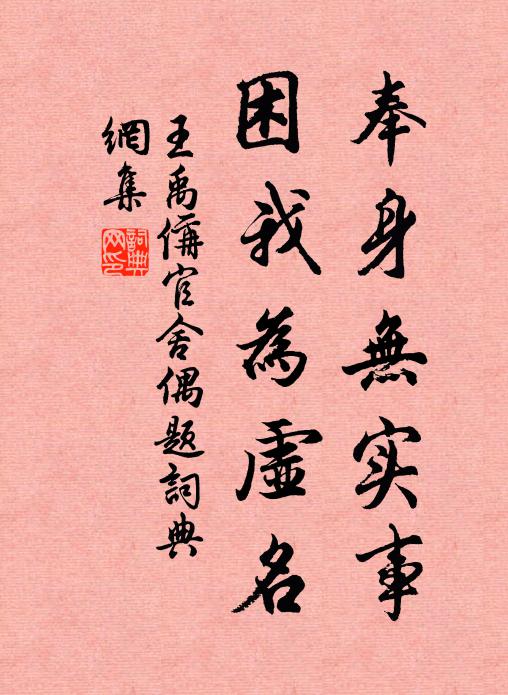 奉身無实事
困我為虛名
王禹偁官舍偶题詞典
網集
詞典網印